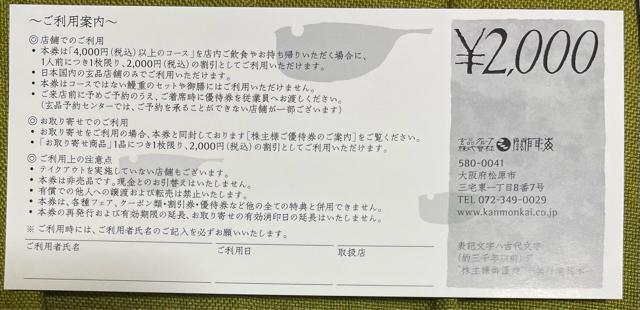 ～ご利用案内～
◎店舗でのご利用
・本券は「4,000円(税込)以上のコース」を店内ご飲食やお持ち帰りいただく場合に、
1人前につき1枚限り、2,000円(税込)の割引としてご利用いただけます。
・日本国内の玄品店舗のみでご利用いただけます。
・本券はコースではない鰻重のセットや御膳にはご利用いただけません。
・ご来店前に予めご予約のうえ、ご着席時に優待券を従業員へお渡しください。
(玄品予約センターでは、ご予約を承ることができない店舗が一部ございます)
◎お取り寄せでのご利用
・お取り寄せをご利用の場合、本券と同封しております[株主様ご優待券のご案内]をご覧ください。
・「お取り寄せ商品」1品につき1枚限り、2,000円(税込)の割引としてご利用いただけます。
◎ご利用上の注意点
・テイクアウトを実施していない店舗もございます。
・本券は非売品です。現金とのお引替えはいたしません。
・有償での他人への譲渡および転売は禁止いたします。
・本券は、各種フェア、クーポン類・割引券・優待券など他の全ての特典と併用できません。
・本券の再発行および有効期限の延長、お取り寄せの有効消印日の延長はいたしません。
※ご利用時には、ご利用者氏名のご記入を必ずお願いいたします。
ご利用者氏名 ご利用日 取扱店
¥2,000
玄品グループ
株式会社 関門海
580-0041
大阪府松原市
三宅東一丁目8番7号
TEL 072-349-0029
www.kanmonkai.co.jp
表記文字ハ古代文字
(約三千年以前)デ
"株主様御優待"